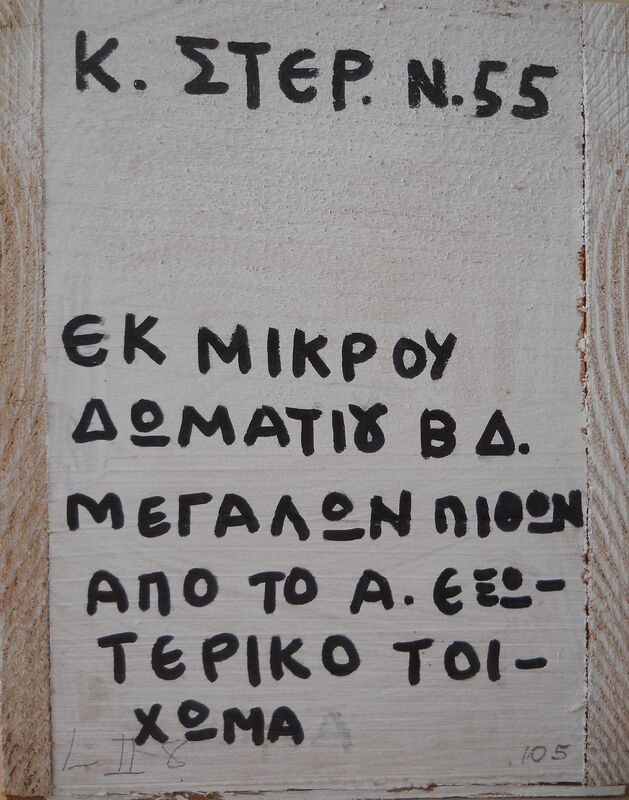 Κ. ΣΤΕΡ. Ν.55
ΕΚ ΜΙΚΡΟΥ
ΔΩΜΑΤΙȢ Β Δ.
ΜΕΓΑΛΩΝ ΠΙΘΩΝ
ΑΠΟ ΤΟ Α. ΕΞΩ-
ΤΕΡΙΚΟ ΤΟΙ-
ΧΩΜΑ
L II 8
105